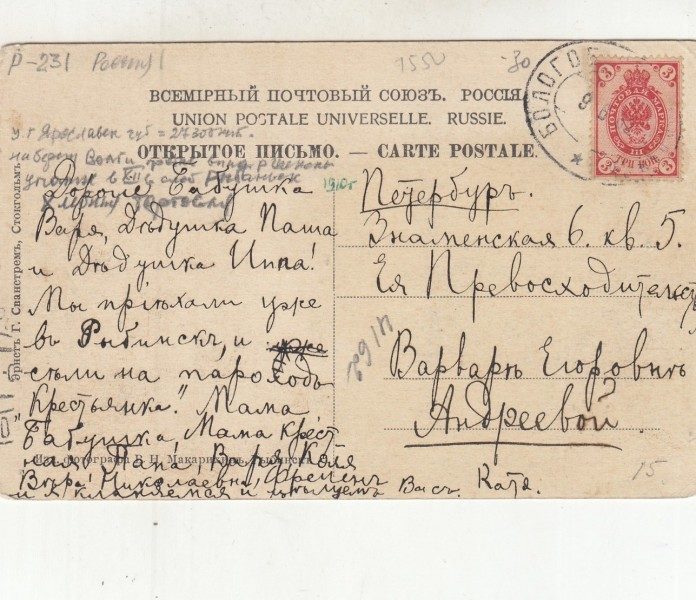 Р-231 Россия 1550 30
ВСЕМІРНЫЙ ПОЧТОВЫЙ СОЮЗЪ. РОССІЯ.
UNION POSTALE UNIVERSELLE. RUSSIE.
ОТКРЫТОЕ ПИСЬМО. — CARTE POSTALE.
БОЛОГОЕ
3 3
3 3
у г Ярославск губ =
на берегу Волги
1910г
Дорогіе Бабушка
Варя, Дѣдушка Паша
и Дѣдушка Инна!
Мы пріѣхали уже
въ Рыбинскъ, и уже
сѣли на пароходъ
"Крестьянка." Мама
Бабушка, Мама Крест
ная, Папа, Варя, Коля
Вѣра Николаевна,
и я кланяемся и цѣлуемъ Васъ. Катя.
Петербургъ.
Знаменская 6. кв. 5.
Ея Превосходительст
Варварѣ Егоровнѣ
Андреевой
15.
Эрнстъ Г. Сванстремъ, Стокгольмъ.
Изд. фотографа В. Н. Макарихи Рыбинск